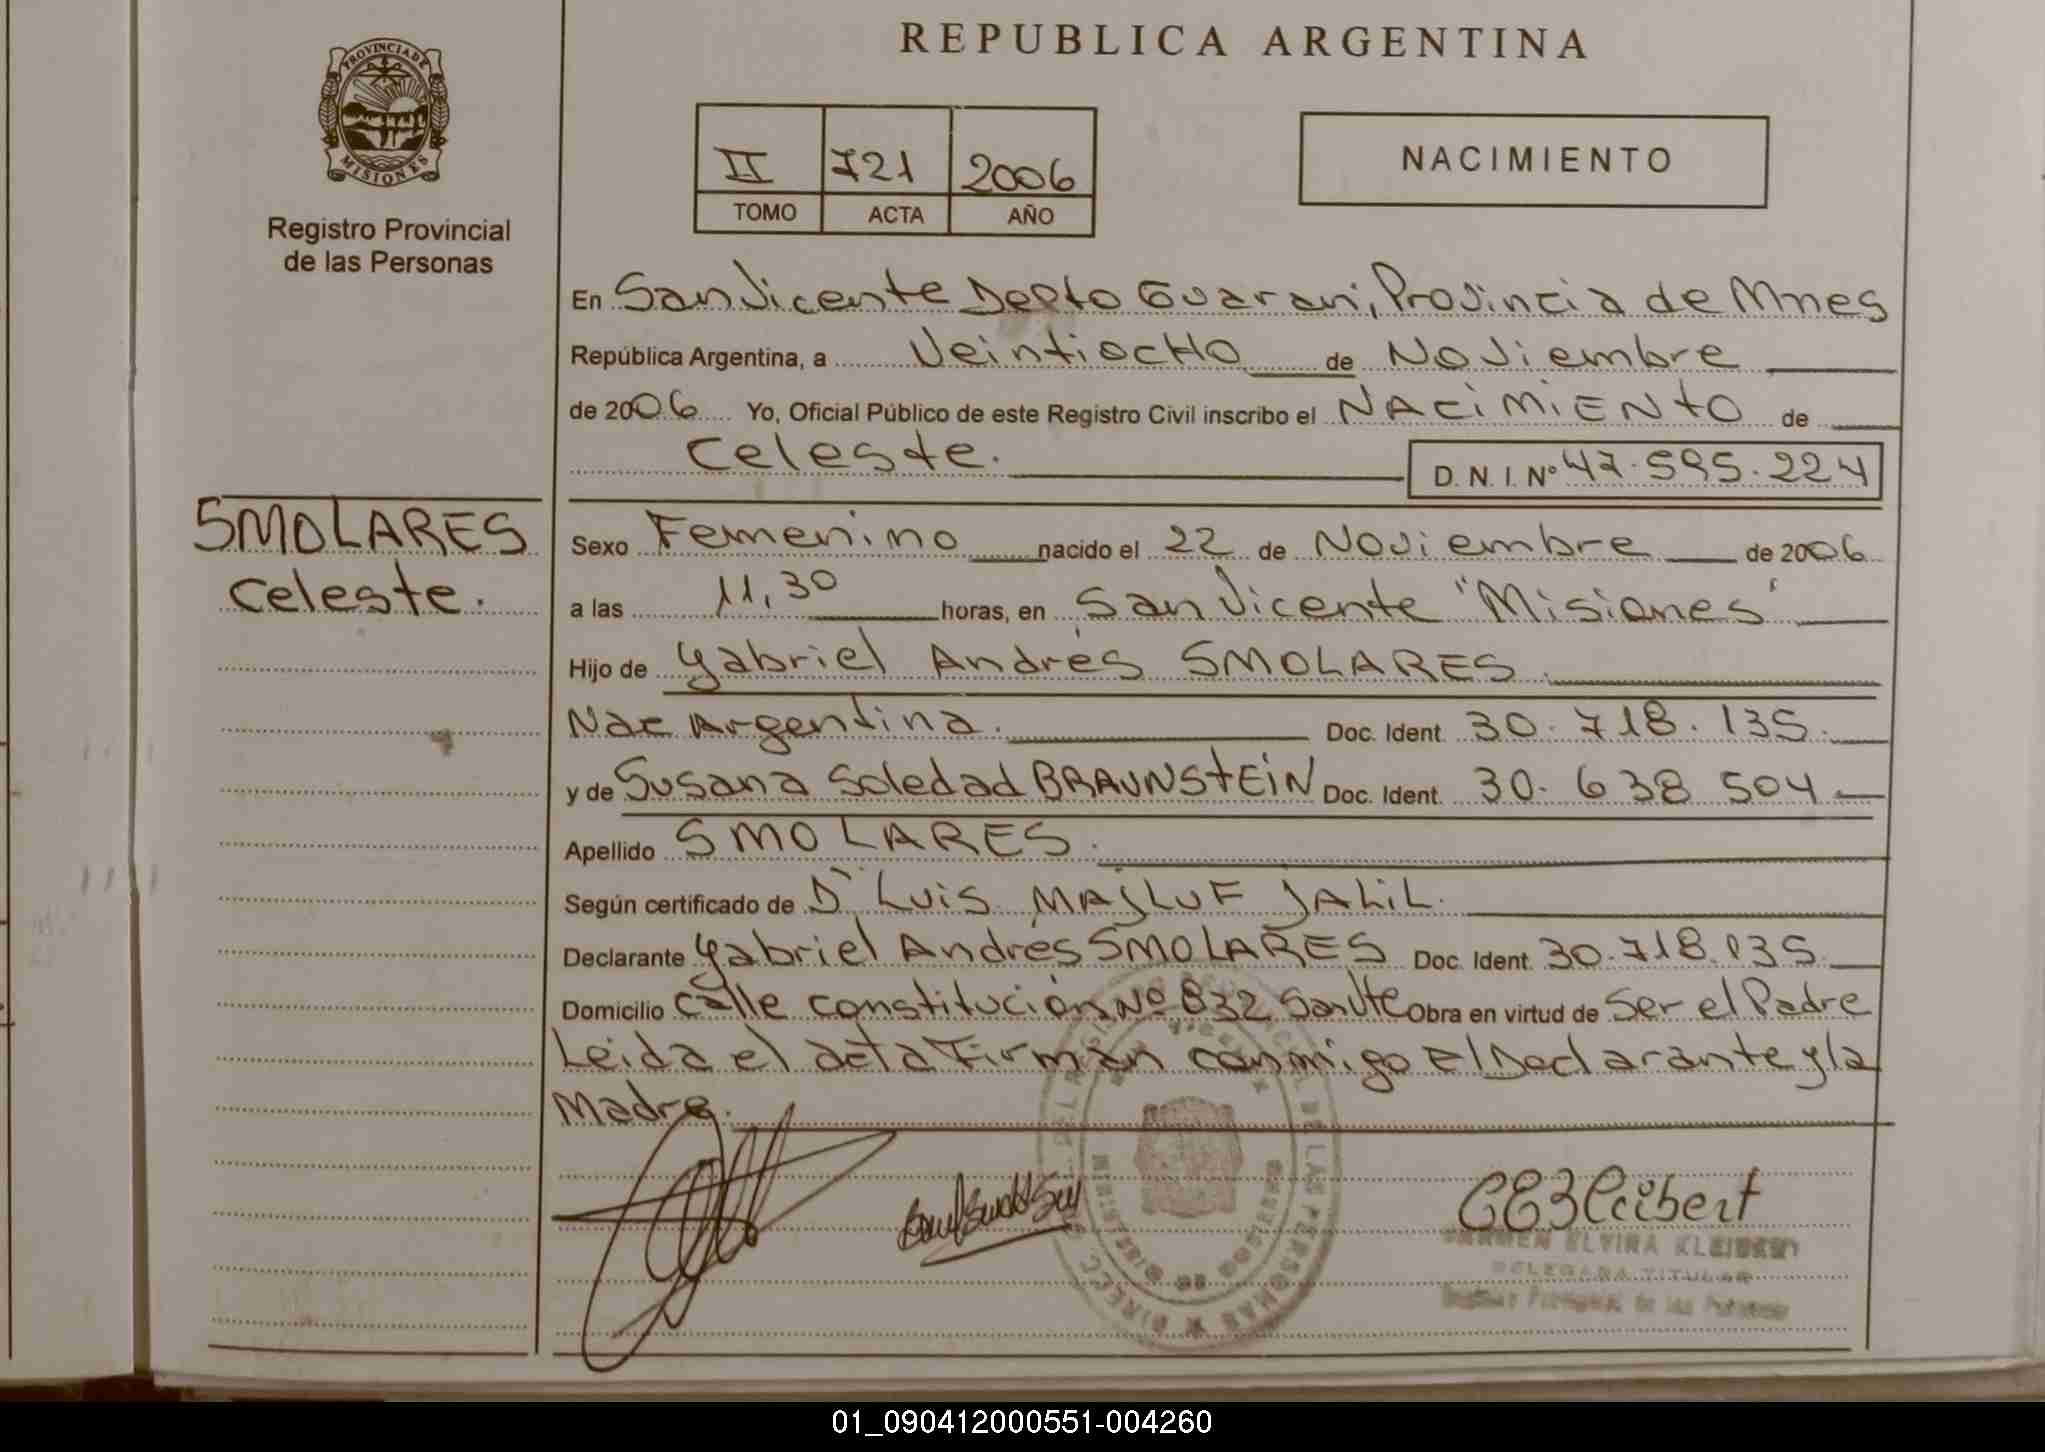 REPUBLICA ARGENTINA
PROVINCIA DE
MISIONES
Registro Provincial
de las Personas
II 721 2006
TOMO ACTA AÑO
NACIMIENTO
En San Vicente Depto Guarani, Provincia de Mnes
República Argentina, a Veintiocho de Noviembre
de 2006 Yo, Oficial Público de este Registro Civil inscribo el NACIMIENTO de
Celeste.
D. N. I. Nº 47.595.224
SMOLARES
Celeste.
Sexo Femenino nacido el 22 de Noviembre de 2006
a las 11,30 horas, en San Vicente "Misiones"
Hijo de Gabriel Andrés SMOLARES
Nac Argentina. Doc. Ident. 30.718.135.
y de Susana Soledad BRAUNSTEIN Doc. Ident. 30.638 504
Apellido SMOLARES.
Según certificado de Dr Luis MAJLUF JALIL.
Declarante Gabriel Andrés SMOLARES Doc. Ident. 30.718.135
Domicilio Calle Constitución Nº 832 San Vte Obra en virtud de Ser el Padre
Leida el acta Firman conmigo El Declarante y la
Madre.
CARMEN ELVIRA KLEIBERT
DELEGADA TITULAR
Registro Provincial de las Personas
01_090412000551-004260